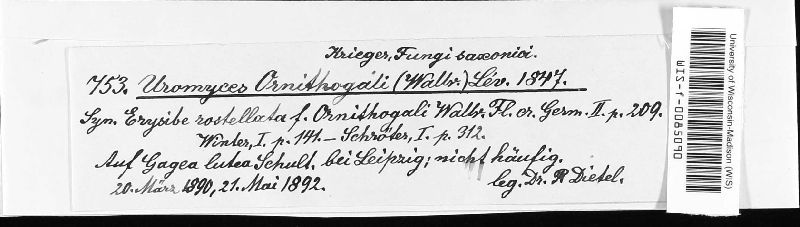 Krieger, Fungi saxonici.
753. Uromyces Ornithogáli (Wallr.) Lév. 1847.
Syn. Erysibe rostellata f. Ornithogali Wallr. Fl. cr. Germ. II. p. 209.
Winter, I. p. 141. – Schröter, I. p. 312.
Auf Gagea lutea Schult. bei Leipzig; nicht häufig.
20. März 1890, 21. Mai 1892.
leg. Dr. P. Dietel.
University of Wisconsin-Madison (WIS)
WIS-f-0085090